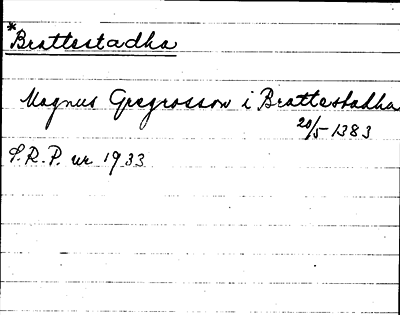 *Brattestadha
Magnus Gregersson i Brattestadha
20/5 1383
S.R.P. nr 1933